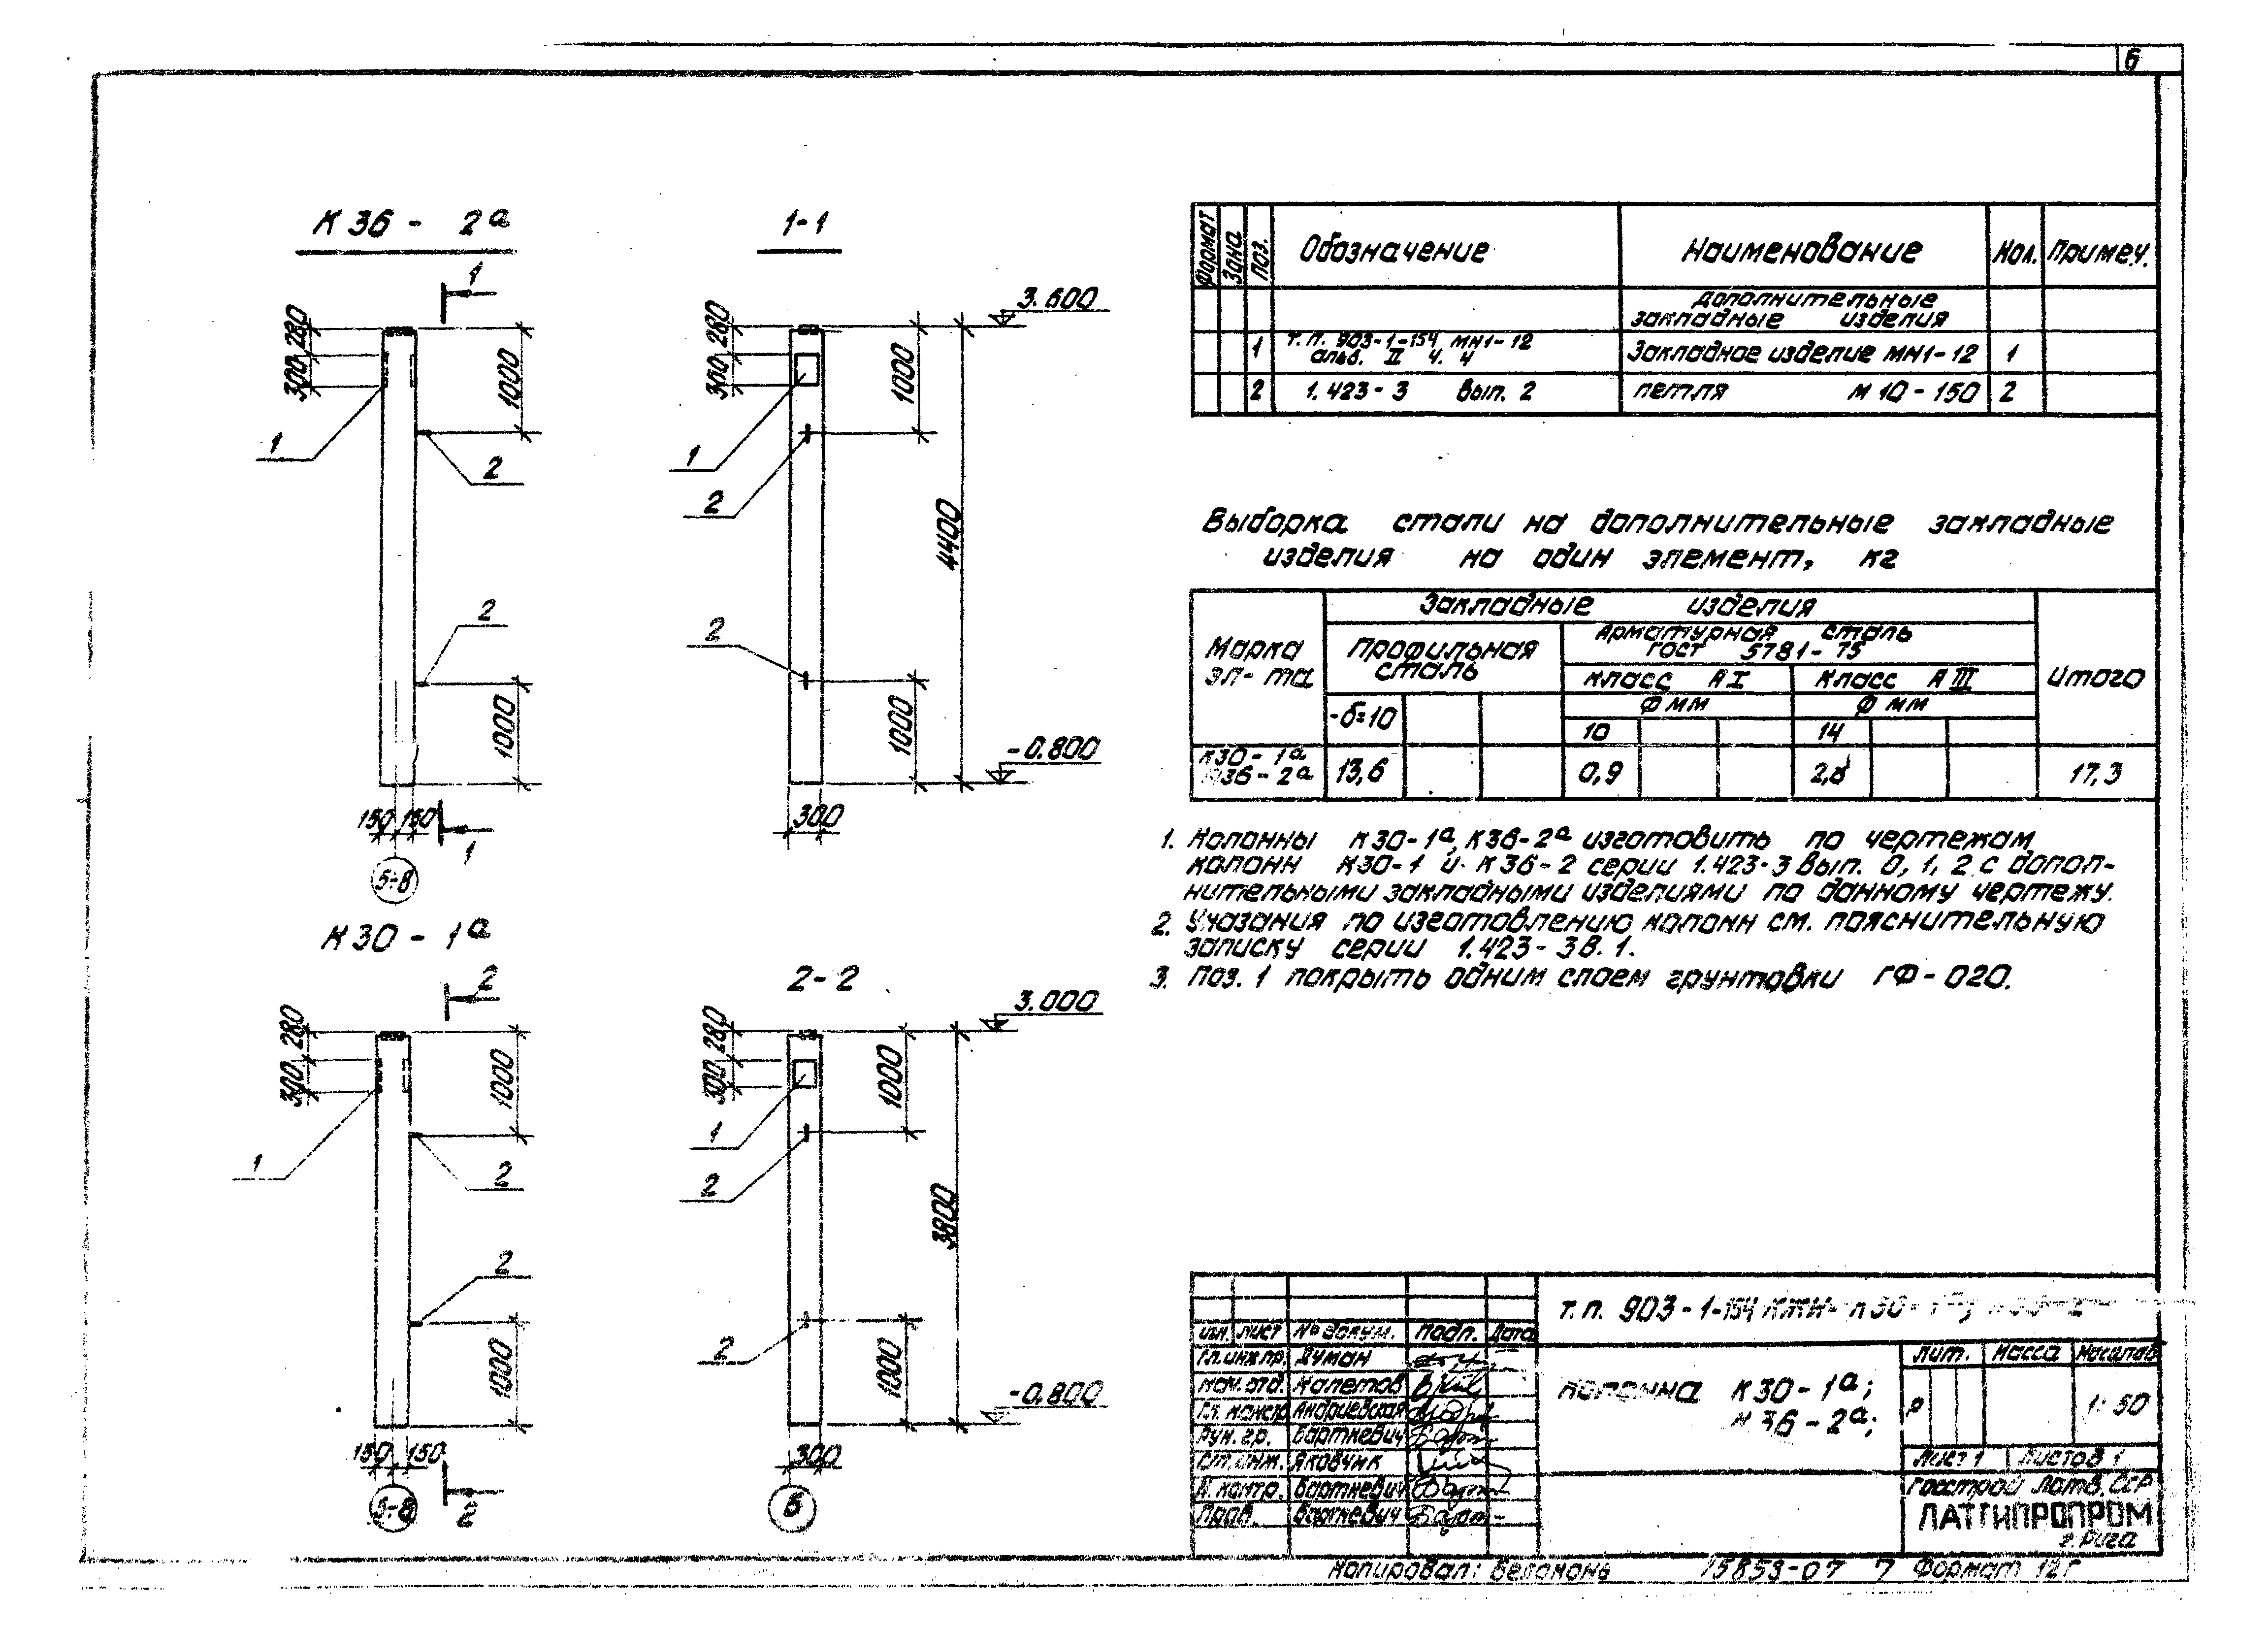 6
К 36 - 2а
1-1
1
280
300
1000
1
2
2
1000
150 150
1
5÷8
280
300
1000
3.600
1
2
4400
2
1000
-0.800
300
К 30 - 1а
2-2
2
280
300
1000
1
2
2
1000
150 150
2
5-8
280
300
1000
3.000
1
2
3800
2
1000
-0.800
300
Б
Формат Зона Поз. Обозначение Наименование Кол. Примеч.
дополнительные
закладные изделия
1 Т.П. 903-1-154 МН1-12
альб. II ч. 4 Закладное изделие МН1-12 1
2 1.423-3 вып. 2 петля М 10-150 2
Выборка стали на дополнительные закладные
изделия на один элемент, кг
Марка
эл-та
Закладные изделия
Итого
Профильная
сталь
Арматурная сталь
ГОСТ 5781-75
класс А I Класс А III
-δ=10 Ф мм Ф мм
10 14
К30-1а
К36-2а 13,6 0,9 2,8 17,3
1. Колонны К30-1а, К36-2а изготовить по чертежам
колонн К30-1 и К36-2 серии 1.423-3 вып. 0, 1, 2 с допол-
нительными закладными изделиями по данному чертежу.
2. Указания по изготовлению колонн см. пояснительную
записку серии 1.423-3 в. 1.
3. Поз. 1 покрыть одним слоем грунтовки ГФ-020.
Т.П. 903-1-154 КЖИ-К30-
Изм. Лист № докум. Подп. Дата
Гл. инж пр. Думан
Нач. отд. Калетов
Гл. констр Андриевская
Рук. гр. Барткевич
Ст. инж. Яковчик
Н. контр. Барткевич
Пров. Барткевич
Колонна К30-1а;
К36-2а;
Лит. Масса Масштаб
Р 1:50
Лист 1 Листов 1
Госстрой Латв. ССР
ЛАТГИПРОПРОМ
г. Рига
Копировал: 15853-07 7 Формат 12Г